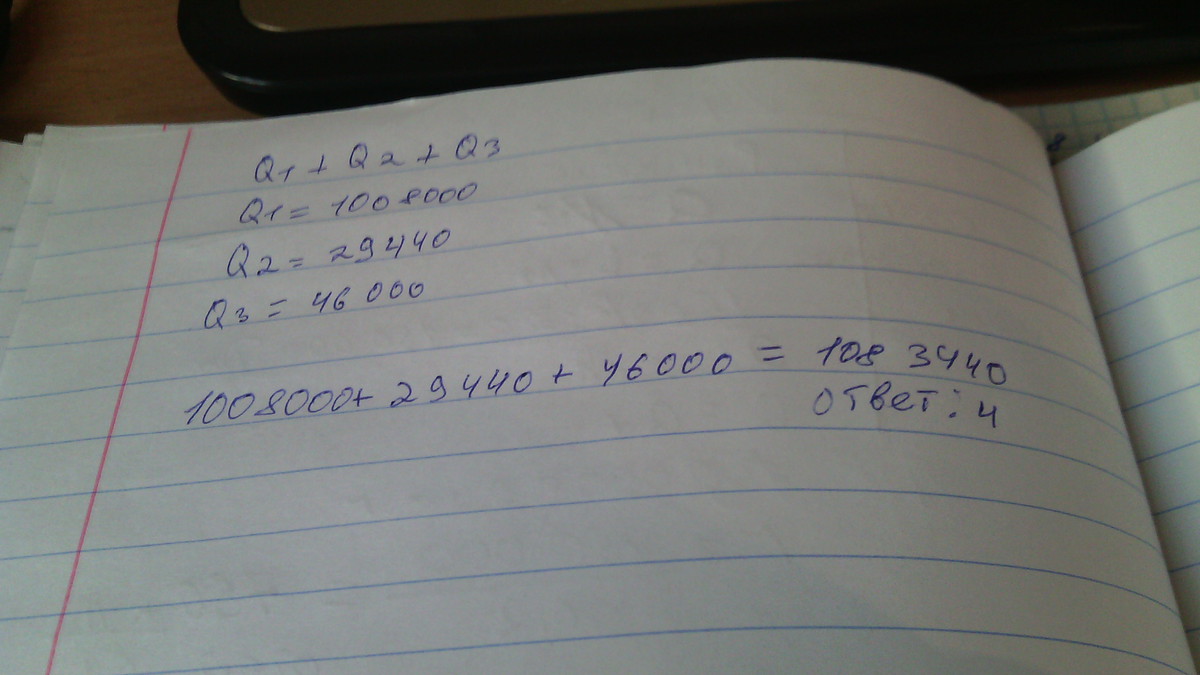 Q1 + Q2 + Q3
Q1 = 1008000
Q2 = 29440
Q3 = 46 000
1008000+ 29440 + 46000 = 108 3440
ответ: 4